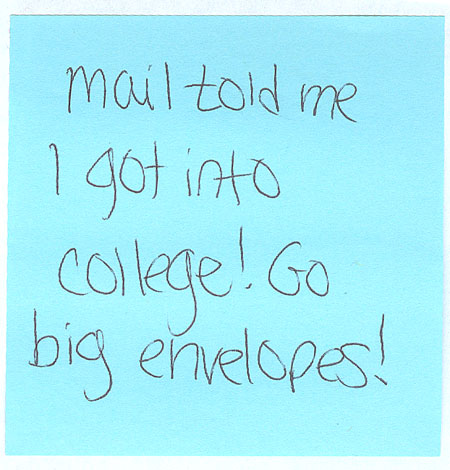 Mail told me
I got into
college! Go
big envelopes!